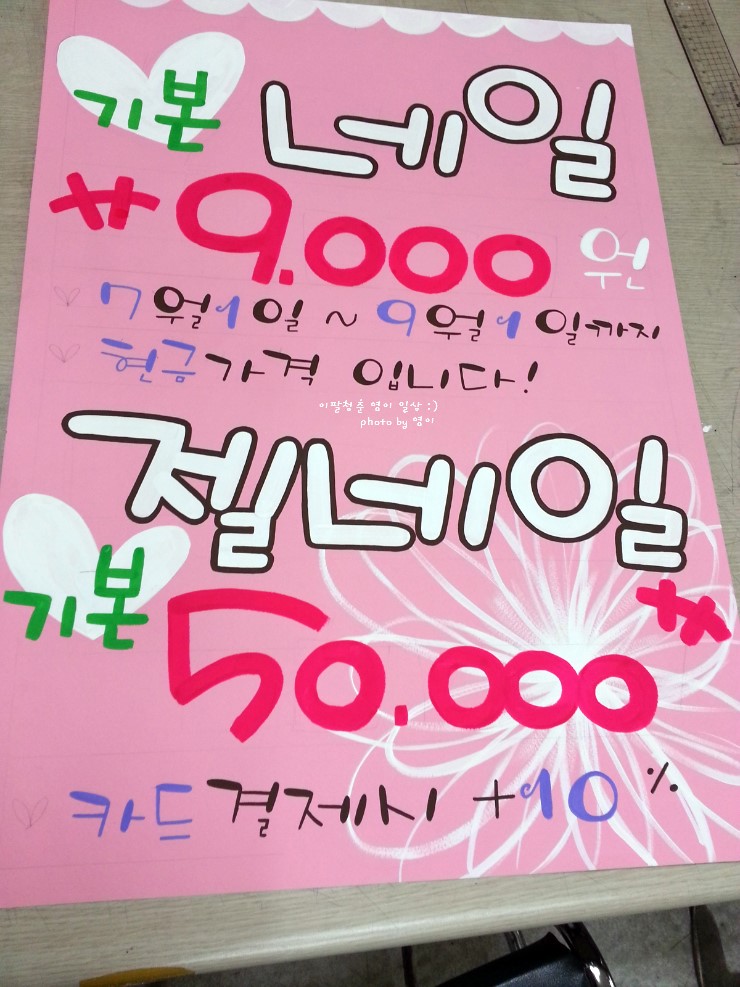 기본 네일
9.000 원
7월1일 ~ 9월1일까지
현금가격 입니다!
이팔청춘 염이 일상 :)
photo by 염이
젤네일
기본 50.000
카드결제시 +10%